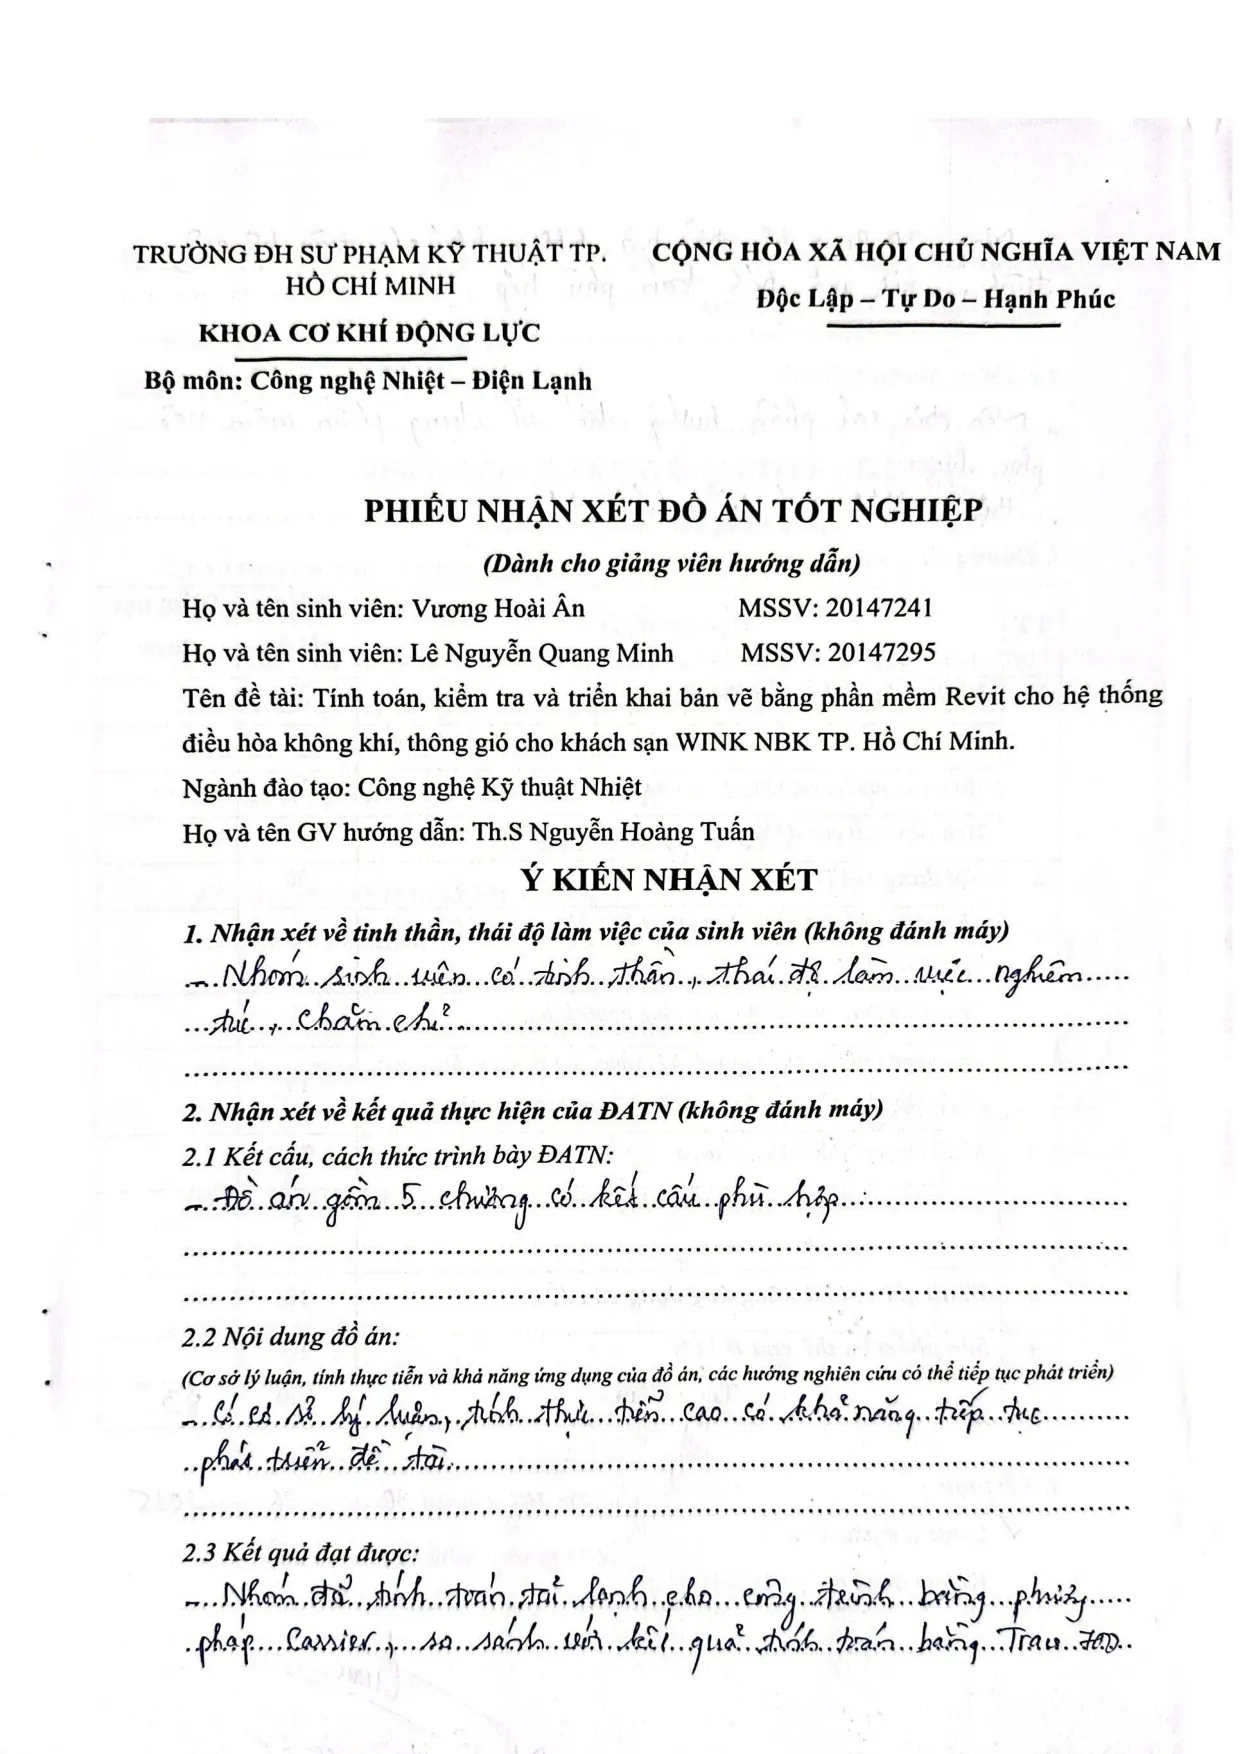 TRƯỜNG ĐH SƯ PHẠM KỸ THUẬT TP.
HỒ CHÍ MINH
KHOA CƠ KHÍ ĐỘNG LỰC
Bộ môn: Công nghệ Nhiệt – Điện Lạnh
CỘNG HÒA XÃ HỘI CHỦ NGHĨA VIỆT NAM
Độc Lập – Tự Do – Hạnh Phúc
PHIẾU NHẬN XÉT ĐỒ ÁN TỐT NGHIỆP
(Dành cho giảng viên hướng dẫn)
Họ và tên sinh viên: Vương Hoài Ân MSSV: 20147241
Họ và tên sinh viên: Lê Nguyễn Quang Minh MSSV: 20147295
Tên đề tài: Tính toán, kiểm tra và triển khai bản vẽ bằng phần mềm Revit cho hệ thống
điều hòa không khí, thông gió cho khách sạn WINK NBK TP. Hồ Chí Minh.
Ngành đào tạo: Công nghệ Kỹ thuật Nhiệt
Họ và tên GV hướng dẫn: Th.S Nguyễn Hoàng Tuấn
Ý KIẾN NHẬN XÉT
1. Nhận xét về tinh thần, thái độ làm việc của sinh viên (không đánh máy)
- Nhóm sinh viên có tinh thần, thái độ làm việc nghiêm
túc, chăm chỉ
2. Nhận xét về kết quả thực hiện của ĐATN (không đánh máy)
2.1 Kết cấu, cách thức trình bày ĐATN:
- Đồ án gồm 5 chương có kết cấu phù hợp.
2.2 Nội dung đồ án:
(Cơ sở lý luận, tính thực tiễn và khả năng ứng dụng của đồ án, các hướng nghiên cứu có thể tiếp tục phát triển)
- Có cơ sở lý luận, tính thực tiễn cao có khả năng tiếp tục
phát triển đề tài.
2.3 Kết quả đạt được:
- Nhóm đã tính toán tải lạnh cho công trình bằng phương
pháp Carrier, so sánh với kết quả tính toán bằng Trace 700